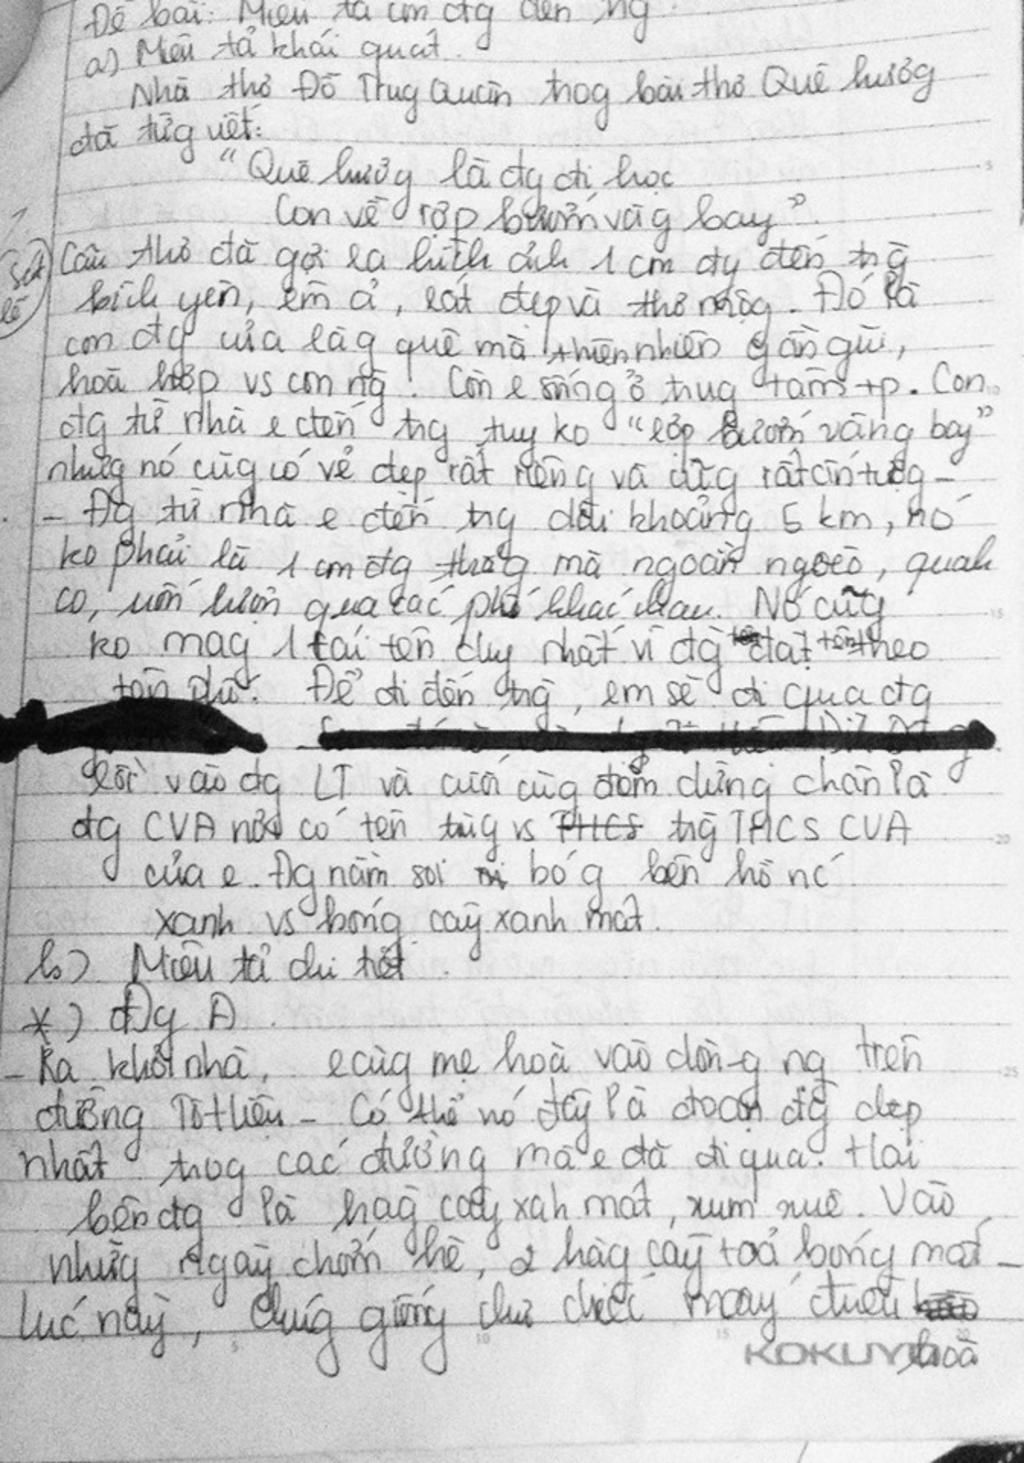 Đề bài: Miêu tả con đg đến trg
a) Miêu tả khái quát.
Nhà thơ Đỗ Trug Quân trog bài thơ Quê hươg
đã từg viết:
"Quê hươg là đg đi học
Con về rợp bướm vàg bay".
Câu thơ đã gợi ra hình ảnh 1 con đg đến trg
bình yên, êm ả, rất đẹp và thơ mộg. Đó là
con đg của làg quê mà thiên nhiên gần gũi,
hoà hợp vs con ng. Còn e sống ở trug tâm tp. Con
đg từ nhà e đến trg tuy ko "rợp bướm vàng bay"
nhưg nó cũg có vẻ đẹp rất riêng và cũg rất ấn tượg -
- Đg từ nhà e đến trg dài khoảng 5 km, nó
ko phải là 1 con đg thẳg mà ngoằn ngoèo, quah
co, uốn lượn qua các phố khác nhau. Nó cũg
ko mag 1 cái tên duy nhất vì đg đặt tên theo
tên phố. Để đi đến trg, em sẽ đi qua đg
rồi vào đg LT và cuối cùg điểm dừng chân là
đg CVA nơi có tên trùg vs THCS trg THCS CVA
của e. Đg nằm soi bóg bên hồ nc
xanh vs bóng cây xanh mát.
b) Miêu tả chi tiết.
*) Đg A
- Ra khỏi nhà, e cùg mẹ hoà vào dòng ng trên
đường Tố Hữu - Có thể nó đây là đoạn đg đẹp
nhất trog các đường mà e đã đi qua. Hai
bên đg là hàg cây xah mát, xum xuê. Vào
nhữg ngày chớm hè, 2 hàg cây toả bóng mát -
lúc này, chúg giống chư chiếc máy điều
hoà
KOKUYO